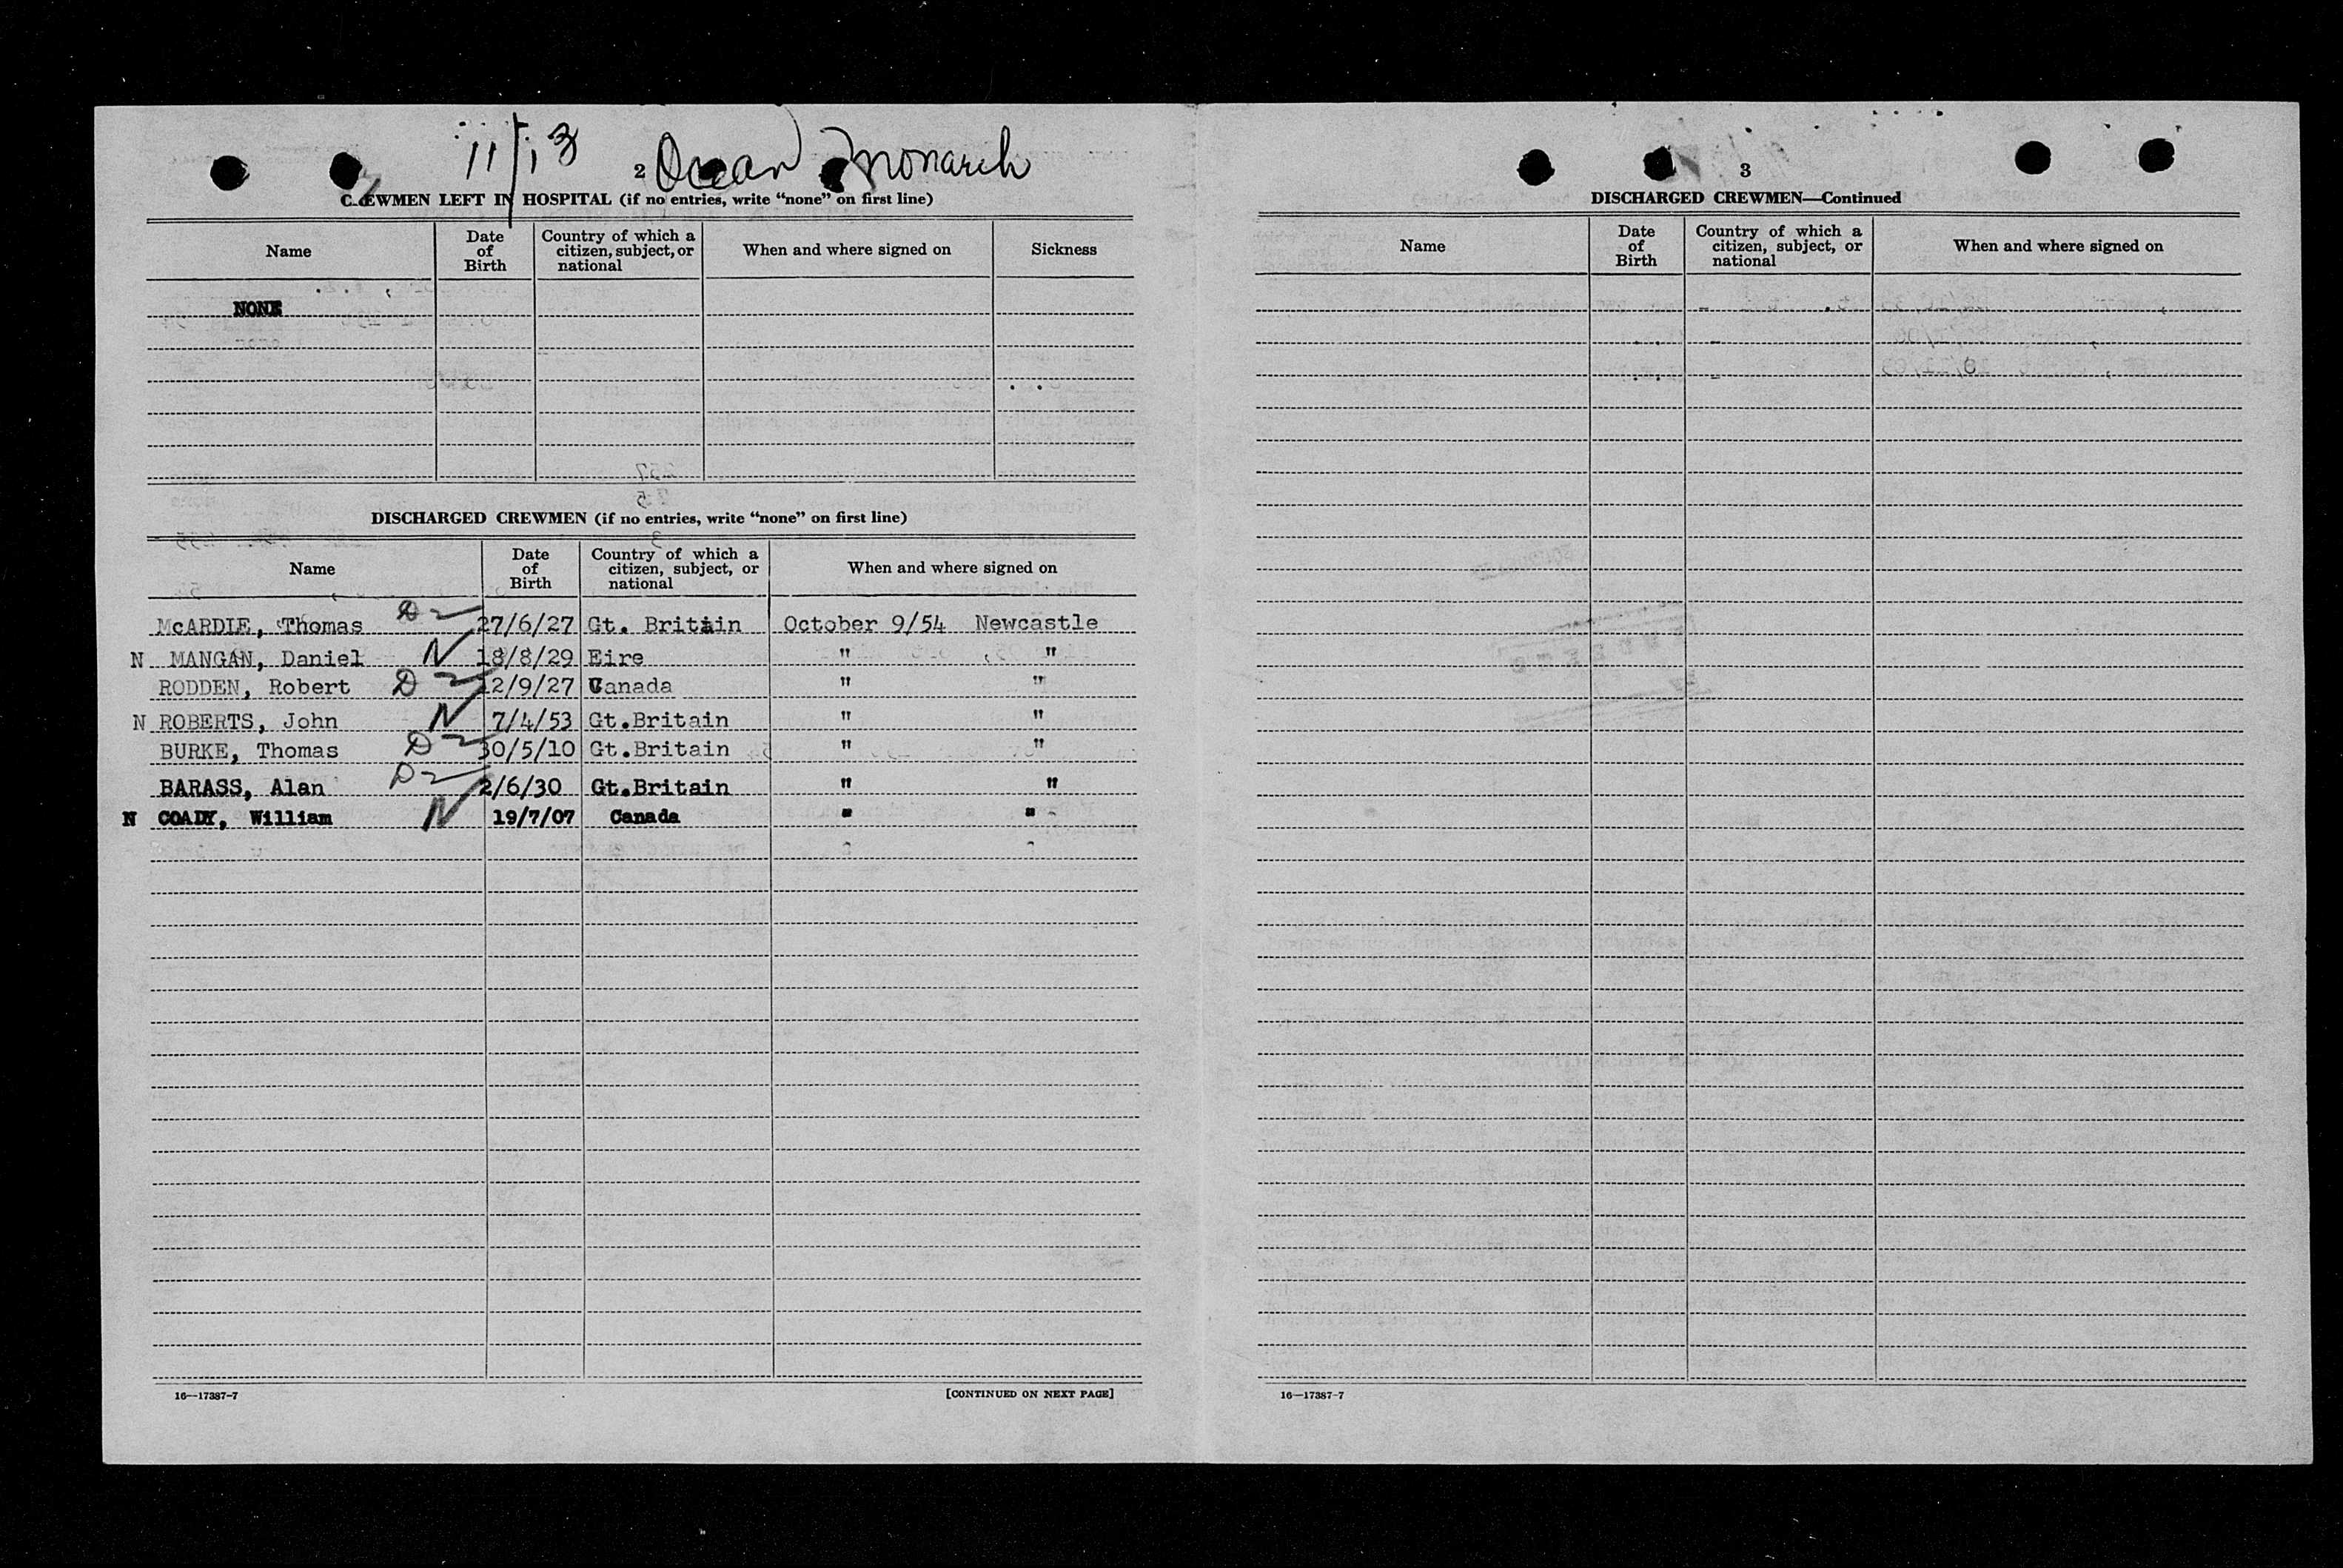 11/13 2 Ocean Monarch
CREWMEN LEFT IN HOSPITAL (if no entries, write “none” on first line)
Name
Date of Birth
Country of which a citizen, subject, or national
When and where signed on
Sickness
NONE
DISCHARGED CREWMEN (if no entries, write “none” on first line)
Name
Date of Birth
Country of which a citizen, subject, or national
When and where signed on
McARDLE, Thomas D 27/6/27 Gt. Britain October 9/54 Newcastle
N MANGAN, Daniel N 18/8/29 Eire " "
RODDEN, Robert D 12/9/27 Canada " "
N ROBERTS, John N 7/4/53 Gt.Britain " "
BURKE, Thomas D 30/5/10 Gt.Britain " "
BARASS, Alan D 2/6/30 Gt.Britain " "
N COADY, William N 19/7/07 Canada " "
16—17387-7 [CONTINUED ON NEXT PAGE]
3
DISCHARGED CREWMEN—Continued
Name
Date of Birth
Country of which a citizen, subject, or national
When and where signed on
16—17387-7